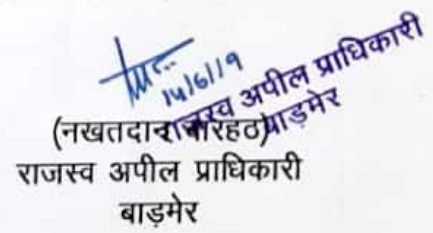 14/6/19
राजस्व अपील प्राधिकारी
बाड़मेर
(नखतदान बारहठ)
राजस्व अपील प्राधिकारी
बाड़मेर